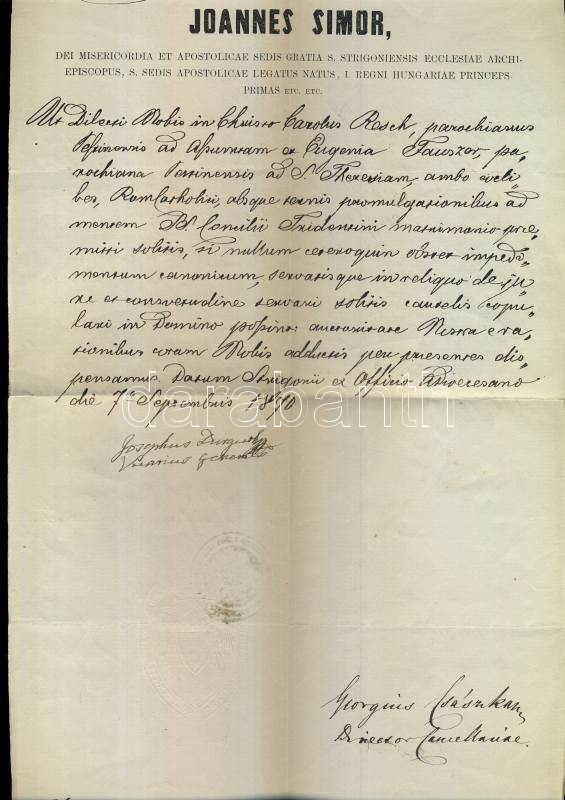 JOANNES SIMOR,
DEI MISERICORDIA ET APOSTOLICAE SEDIS GRATIA S. STRIGONIENSIS ECCLESIAE ARCHI-
EPISCOPUS, S. SEDIS APOSTOLICAE LEGATUS NATUS, I. REGNI HUNGARIAE PRINCEPS
PRIMAS ETC. ETC.
Ut Dilecti Nobis in Christo Carolus Resch, parochianus
Pestinensis ad Assumtam et Eugenia Fauszer, pa-
rochiana Pestinensis ad S. Theresiam, ambo coeli-
bes, Rom Catholici, absque ternis promulgationibus ad
mentem B Concilii Tridentini matrimonio pre-
mitti solitis, si nullum ceteroquin obstet impedi-
mentum canonicum, servatisque in reliquo de ju-
re et consvetudine servari solitis cautelis copu-
lari in Domino possint: auctoritate Nostra e ra-
tionibus coram Nobis adductis per presentes dis-
pensamus. Datum Strigonii ex Officio Dioecesano
die 7a Septembris 1870
darabanth
Josephus
Vicarius Generalis
Georgius Császka
Director Cancellariae.